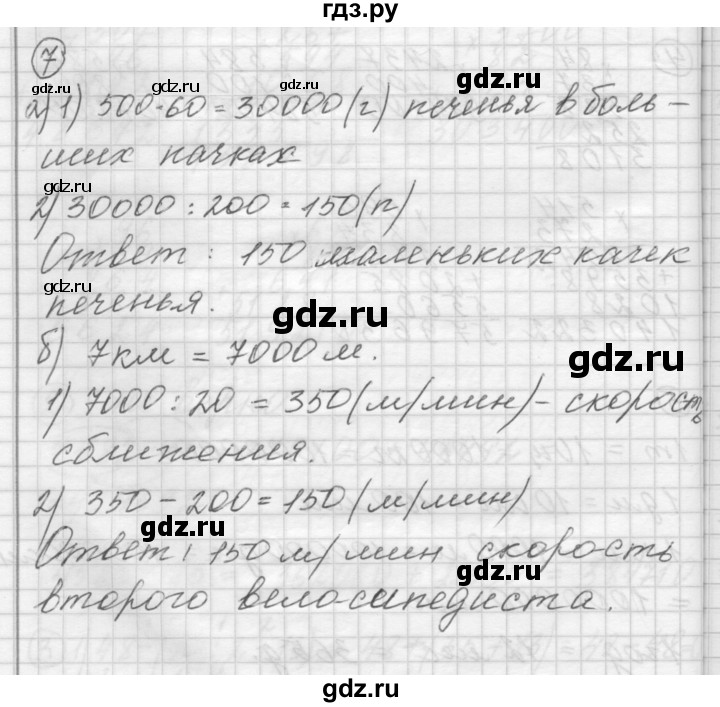 гдз.ру
7
а) 1) 500·60 = 30000 (г) печенья в боль-
ших пачках
2) 30000 : 200 = 150 (п)
Ответ : 150 маленьких качек
печенья.
б) 7 км = 7000 м.
1) 7000 : 20 = 350 (м/мин) - скорость
сближения.
2) 350 - 200 = 150 (м/мин)
Ответ: 150 м/мин скорость
второго велосипедиста.
gdz.ru
gdz.ru
gdz.ru
gdz.ru
gdz.ru
gdz.ru
gdz.ru
gdz.ru
gdz.ru
gdz.ru
gdz.ru
gdz.ru